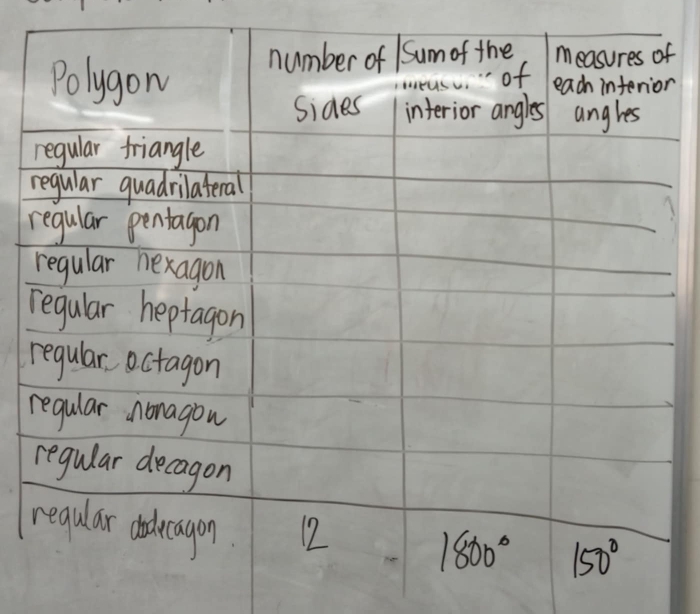 Polygon
number of sides
Sum of the measures of interior angles
measures of each interior angles
regular triangle
regular quadrilateral
regular pentagon
regular hexagon
regular heptagon
regular octagon
regular nonagon
regular decagon
regular dodecagon 12 1800° 150°